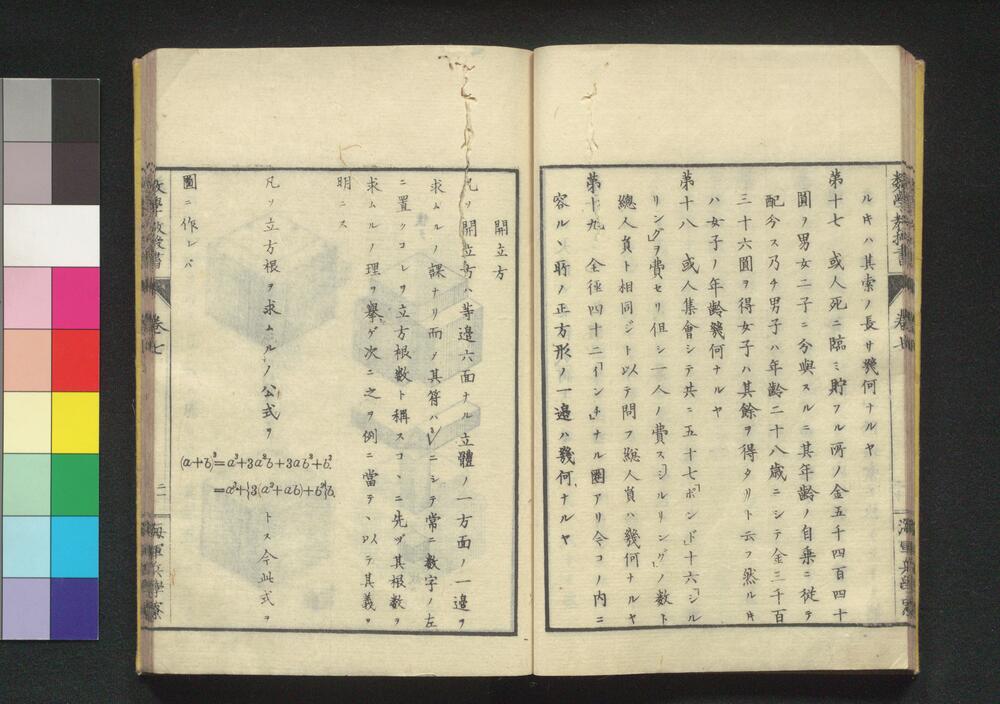 ルキハ其索ノ長サ幾何ナルヤ
第十七 或人死ニ臨ミ貯フル所ノ金五千四百四十
圓ヲ男女二子ニ分與スルニ其年齡ノ自乗ニ従テ
配分ス乃チ男子ハ年齡二十八歳ニシテ金三千百
三十六圓ヲ得女子ハ其餘ヲ得タリト云フ然ルキ
ハ女子ノ年齡幾何ナルヤ
第十八 或人集會シテ共ニ五十七「ポンド」十六「シル
リング」ヲ費セリ但シ一人ノ費ス「シルリング」ノ数ト
總人員ト相同ジト以テ問フ總人員ハ幾何ナルヤ
第十九 全径四十二「インチ」ナル圏アリ今コノ内ニ
容ルヽ所ノ正方形ノ一邉ハ幾何ナルヤ
開立方
凡ソ開立方ハ等邉六面ナル立體ノ一方面ノ一邉ヲ
求ムルノ課ナリ而メ其符ハ∛ニシテ常ニ数字ノ左
ニ置クコレヲ立方根数ト稱スコヽニ先ヅ其根数ヲ
求ムルノ理ヲ擧ゲ次ニ之ヲ例ニ當テヽ以テ其義ヲ
明ニス
凡ソ立方根ヲ求ムルノ公式ヲ
(a+b)³=a³+3a²b+3ab²+b³
=a³+{3(a²+ab)+b²}b
トス今此式ヲ
圖ニ作レバ
數學教授書
卷七
海軍兵學寮